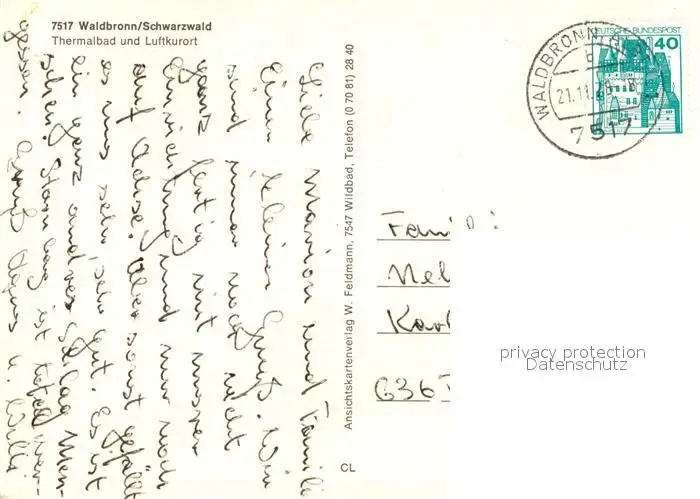 7517 Waldbronn/Schwarzwald
Thermalbad und Luftkurort
Liebe Marion und Famili
Einen kleinen Gruß. Wir
sind immer noch nicht
ganz fertig mit unserer
Einrichtung und nur noch
auf Achse. Aber sonst gefällt
es uns sehr, sehr gut. Es ist
ein ganz andrer Schlag Men-
schen. Starnbag ist total ver-
gessen. Gruß Agnes u. Willi
Ansichtskartenverlag W. Feldmann, 7547 Wildbad, Telefon (0 70 81) 28 40
CL
WALDBRONN
21.11.
7517
DEUTSCHE BUNDESPOST
40
Fami
Mel
Karl
636
privacy protection
Datenschutz